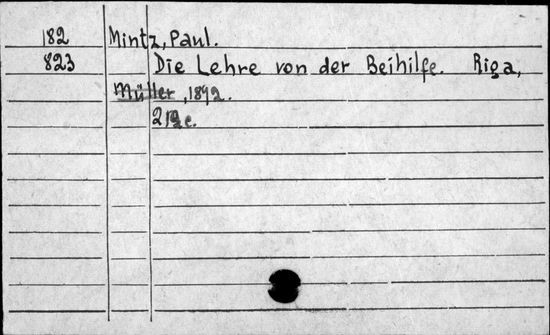 182 Mintz, Paul.
823 Die Lehre von der Beihilfe. Riga,
Müller, 1892.